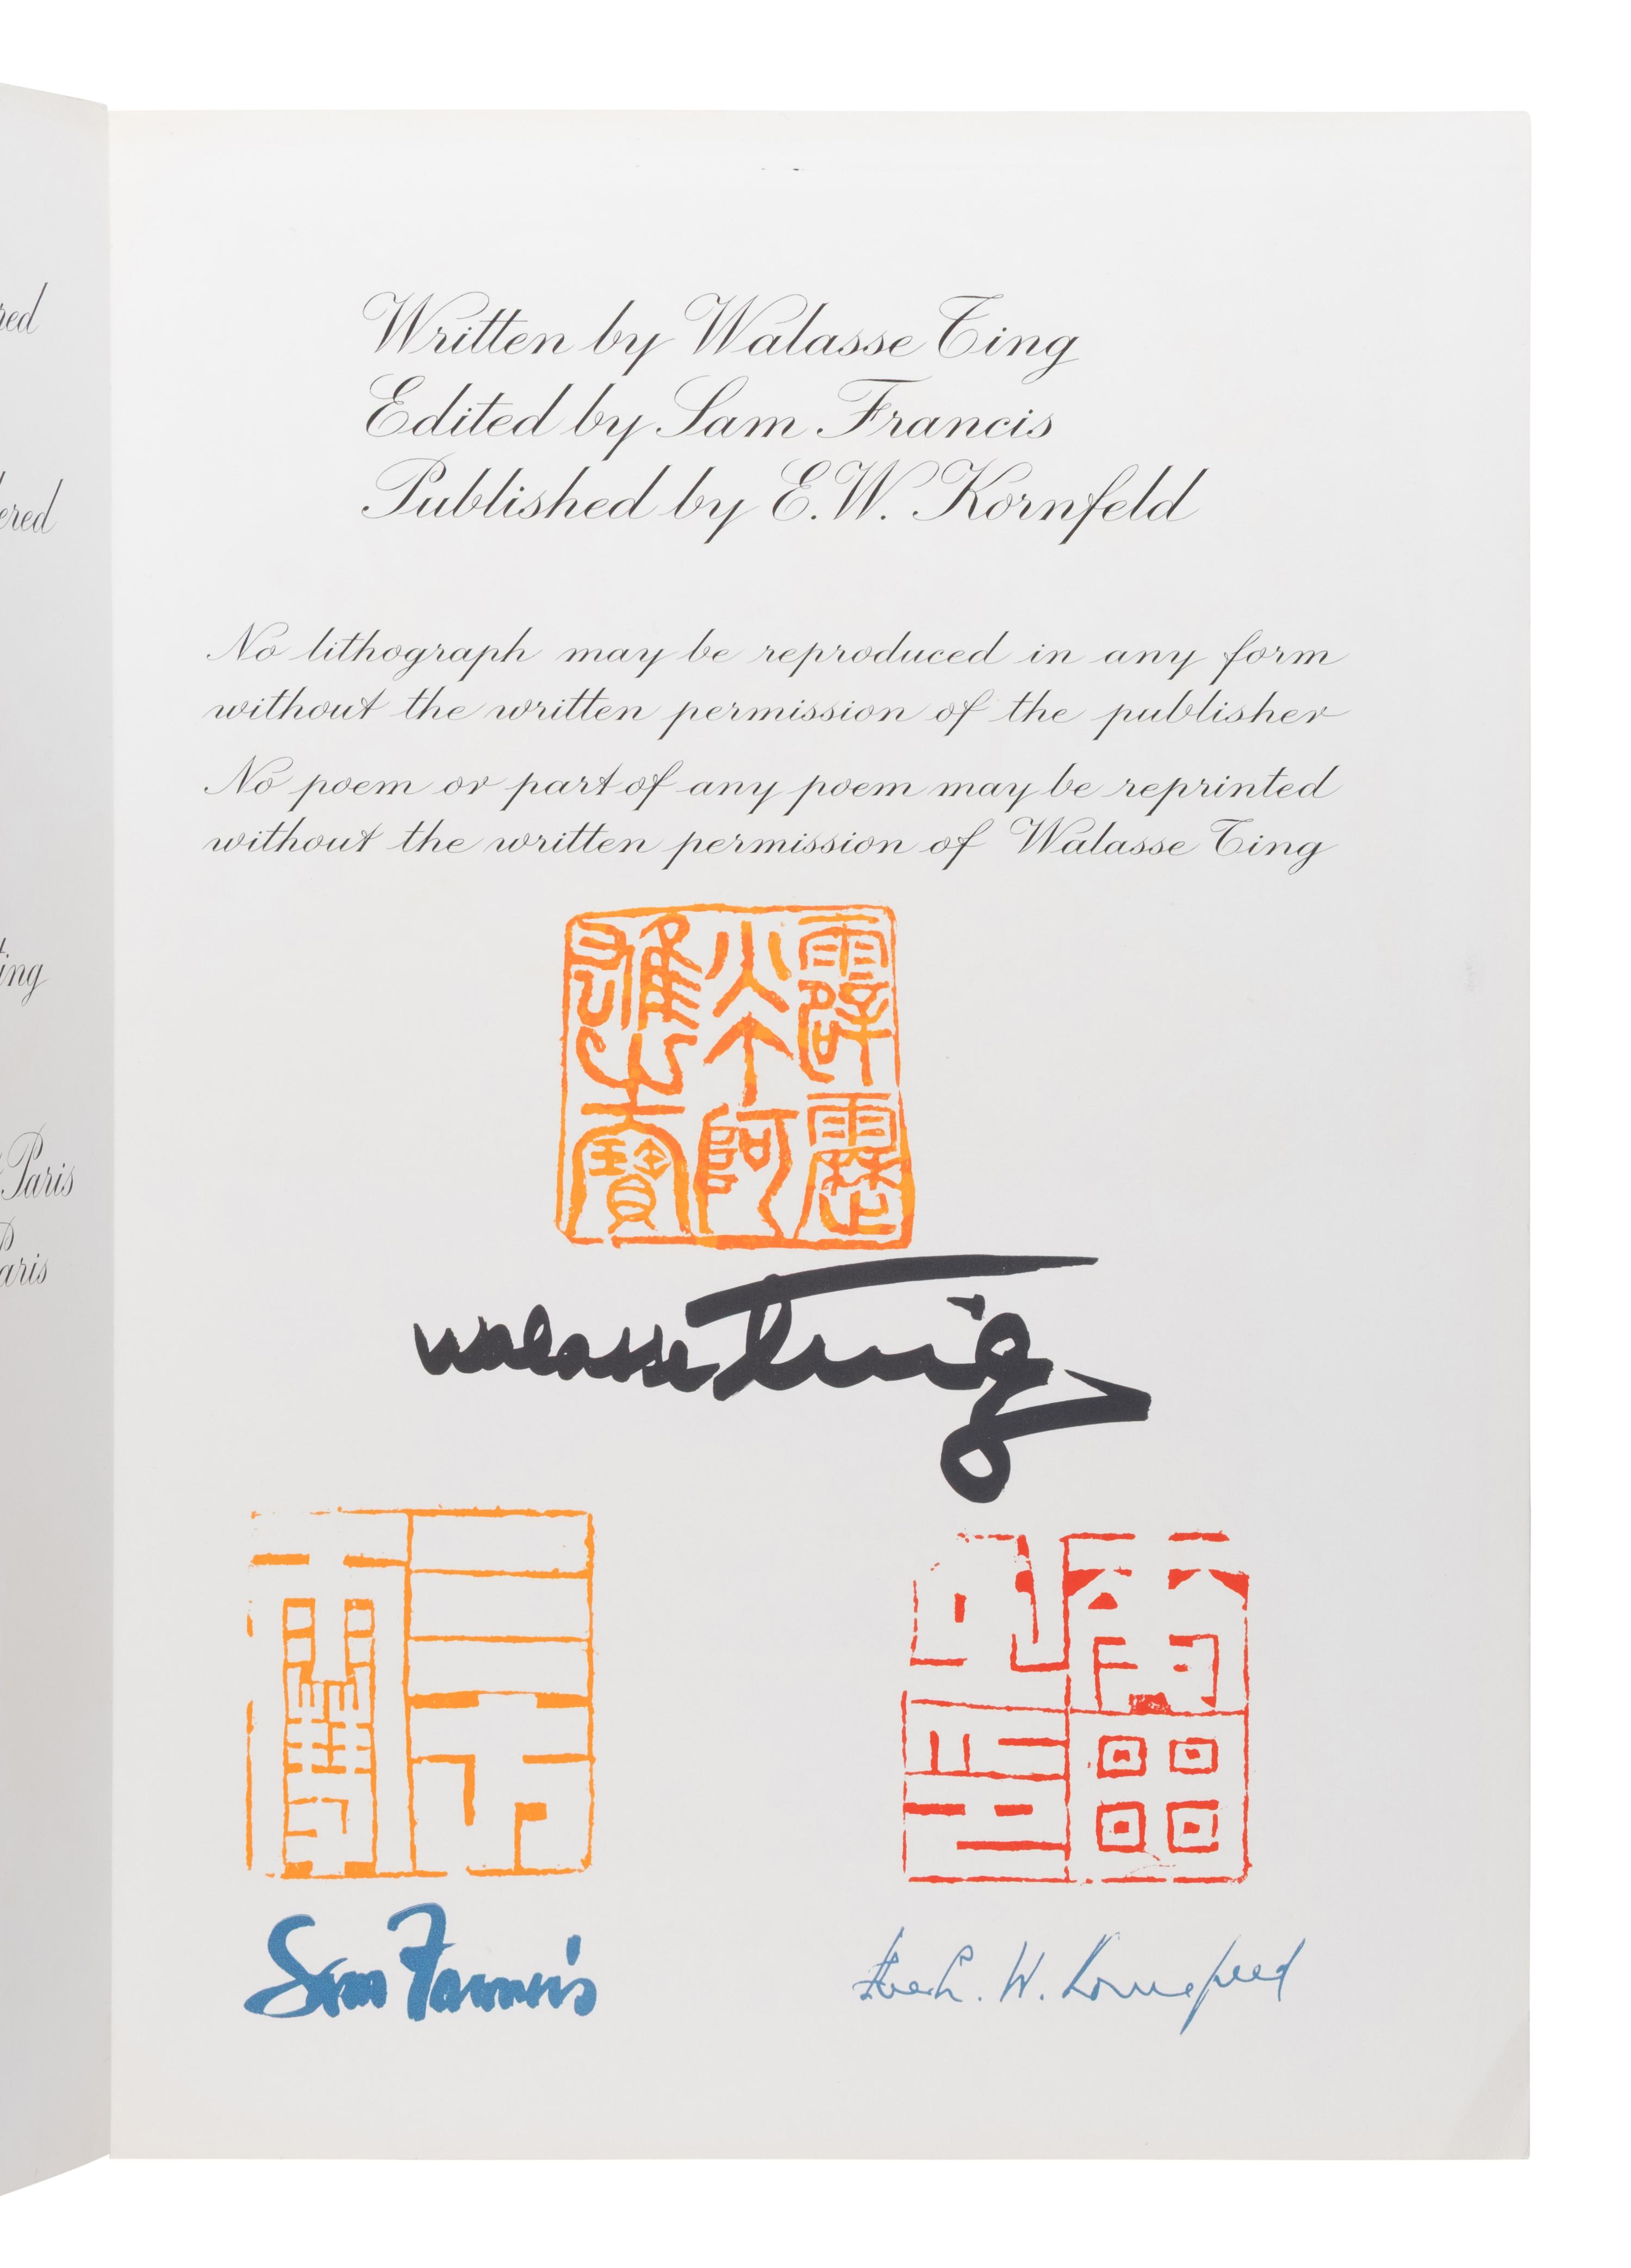 red
ered
ing
Paris
aris
Written by Walasse Ting
Edited by Sam Francis
Published by E.W. Kornfeld
No lithograph may be reproduced in any form
without the written permission of the publisher
No poem or part of any poem may be reprinted
without the written permission of Walasse Ting
霹靂
walasse Ting
Sam Francis
W. Kornfeld